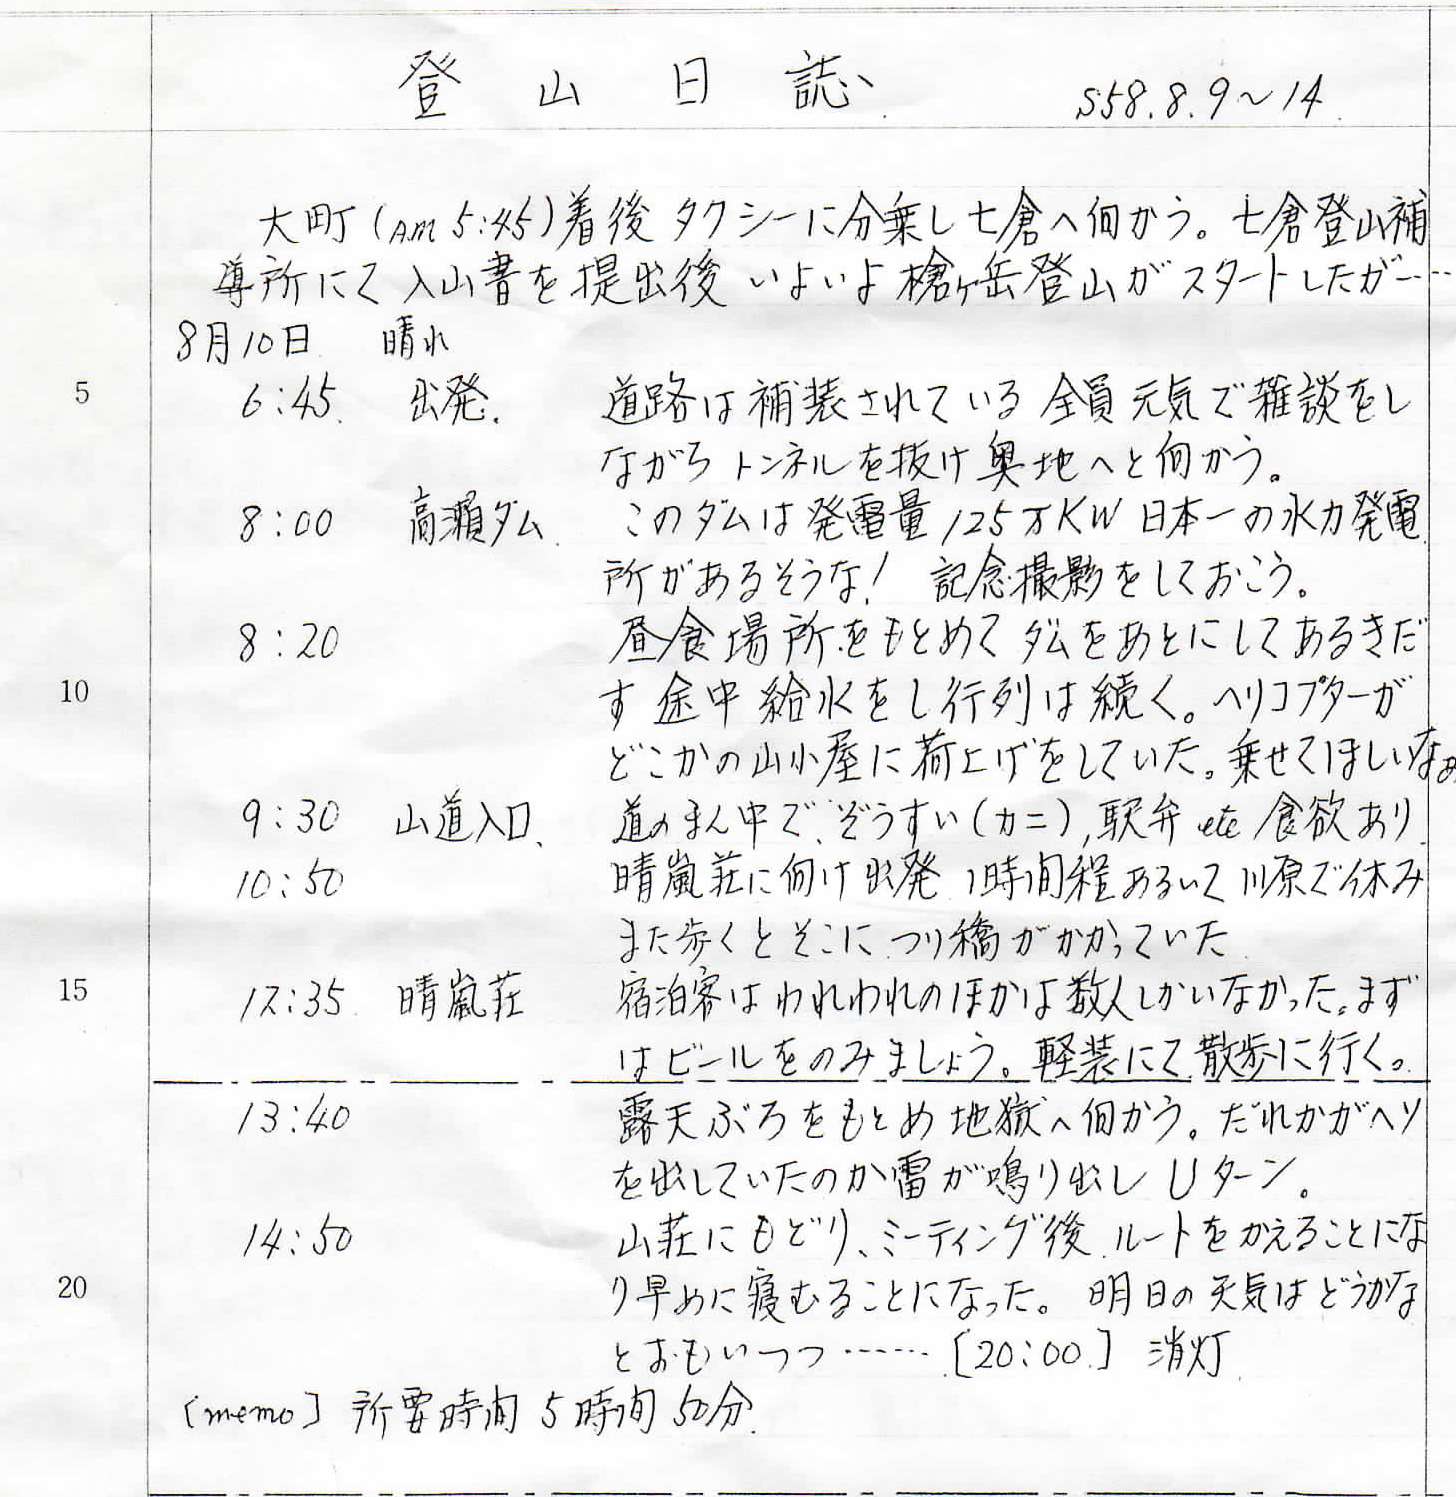 登山日誌 S58.8.9～14
大町(AM 5:45)着後タクシーに分乗し七倉へ向かう。七倉登山補
導所にて入山書を提出後いよいよ槍ヶ岳登山がスタートしたが……
8月10日 晴れ
5 6:45 出発. 道路は補装されている全員元気で雑談をし
ながらトンネルを抜け奥地へと向かう。
8:00 高瀬ダム このダムは発電量125万KW日本一の水力発電
所があるそうな! 記念撮影をしておこう。
8:20 昼食場所をもとめてダムをあとにしてあるきだ
10 す途中給水をし行列は続く。ヘリコプターが
どこかの山小屋に荷上げをしていた。乗せてほしいなぁ
9:30 山道入口、 道のまん中で、ぞうすい(カニ),駅弁etc食欲あり
10:50 晴嵐荘に向け出発 1時間程あるいて川原で休み
また歩くとそこにつり橋がかかっていた
15 12:35 晴嵐荘 宿泊客はわれわれのほかは数人しかいなかった。まず
はビールをのみましょう。軽装にて散歩に行く。
13:40 露天ぶろをもとめ地獄へ向かう。だれかがヘソ
を出していたのか雷が鳴り出しUターン。
14:50 山荘にもどり、ミーティング後ルートをかえることにな
20 り早めに寝むることになった。明日の天気はどうかな
とおもいつつ……[20:00]消灯
[memo] 所要時間5時間50分.